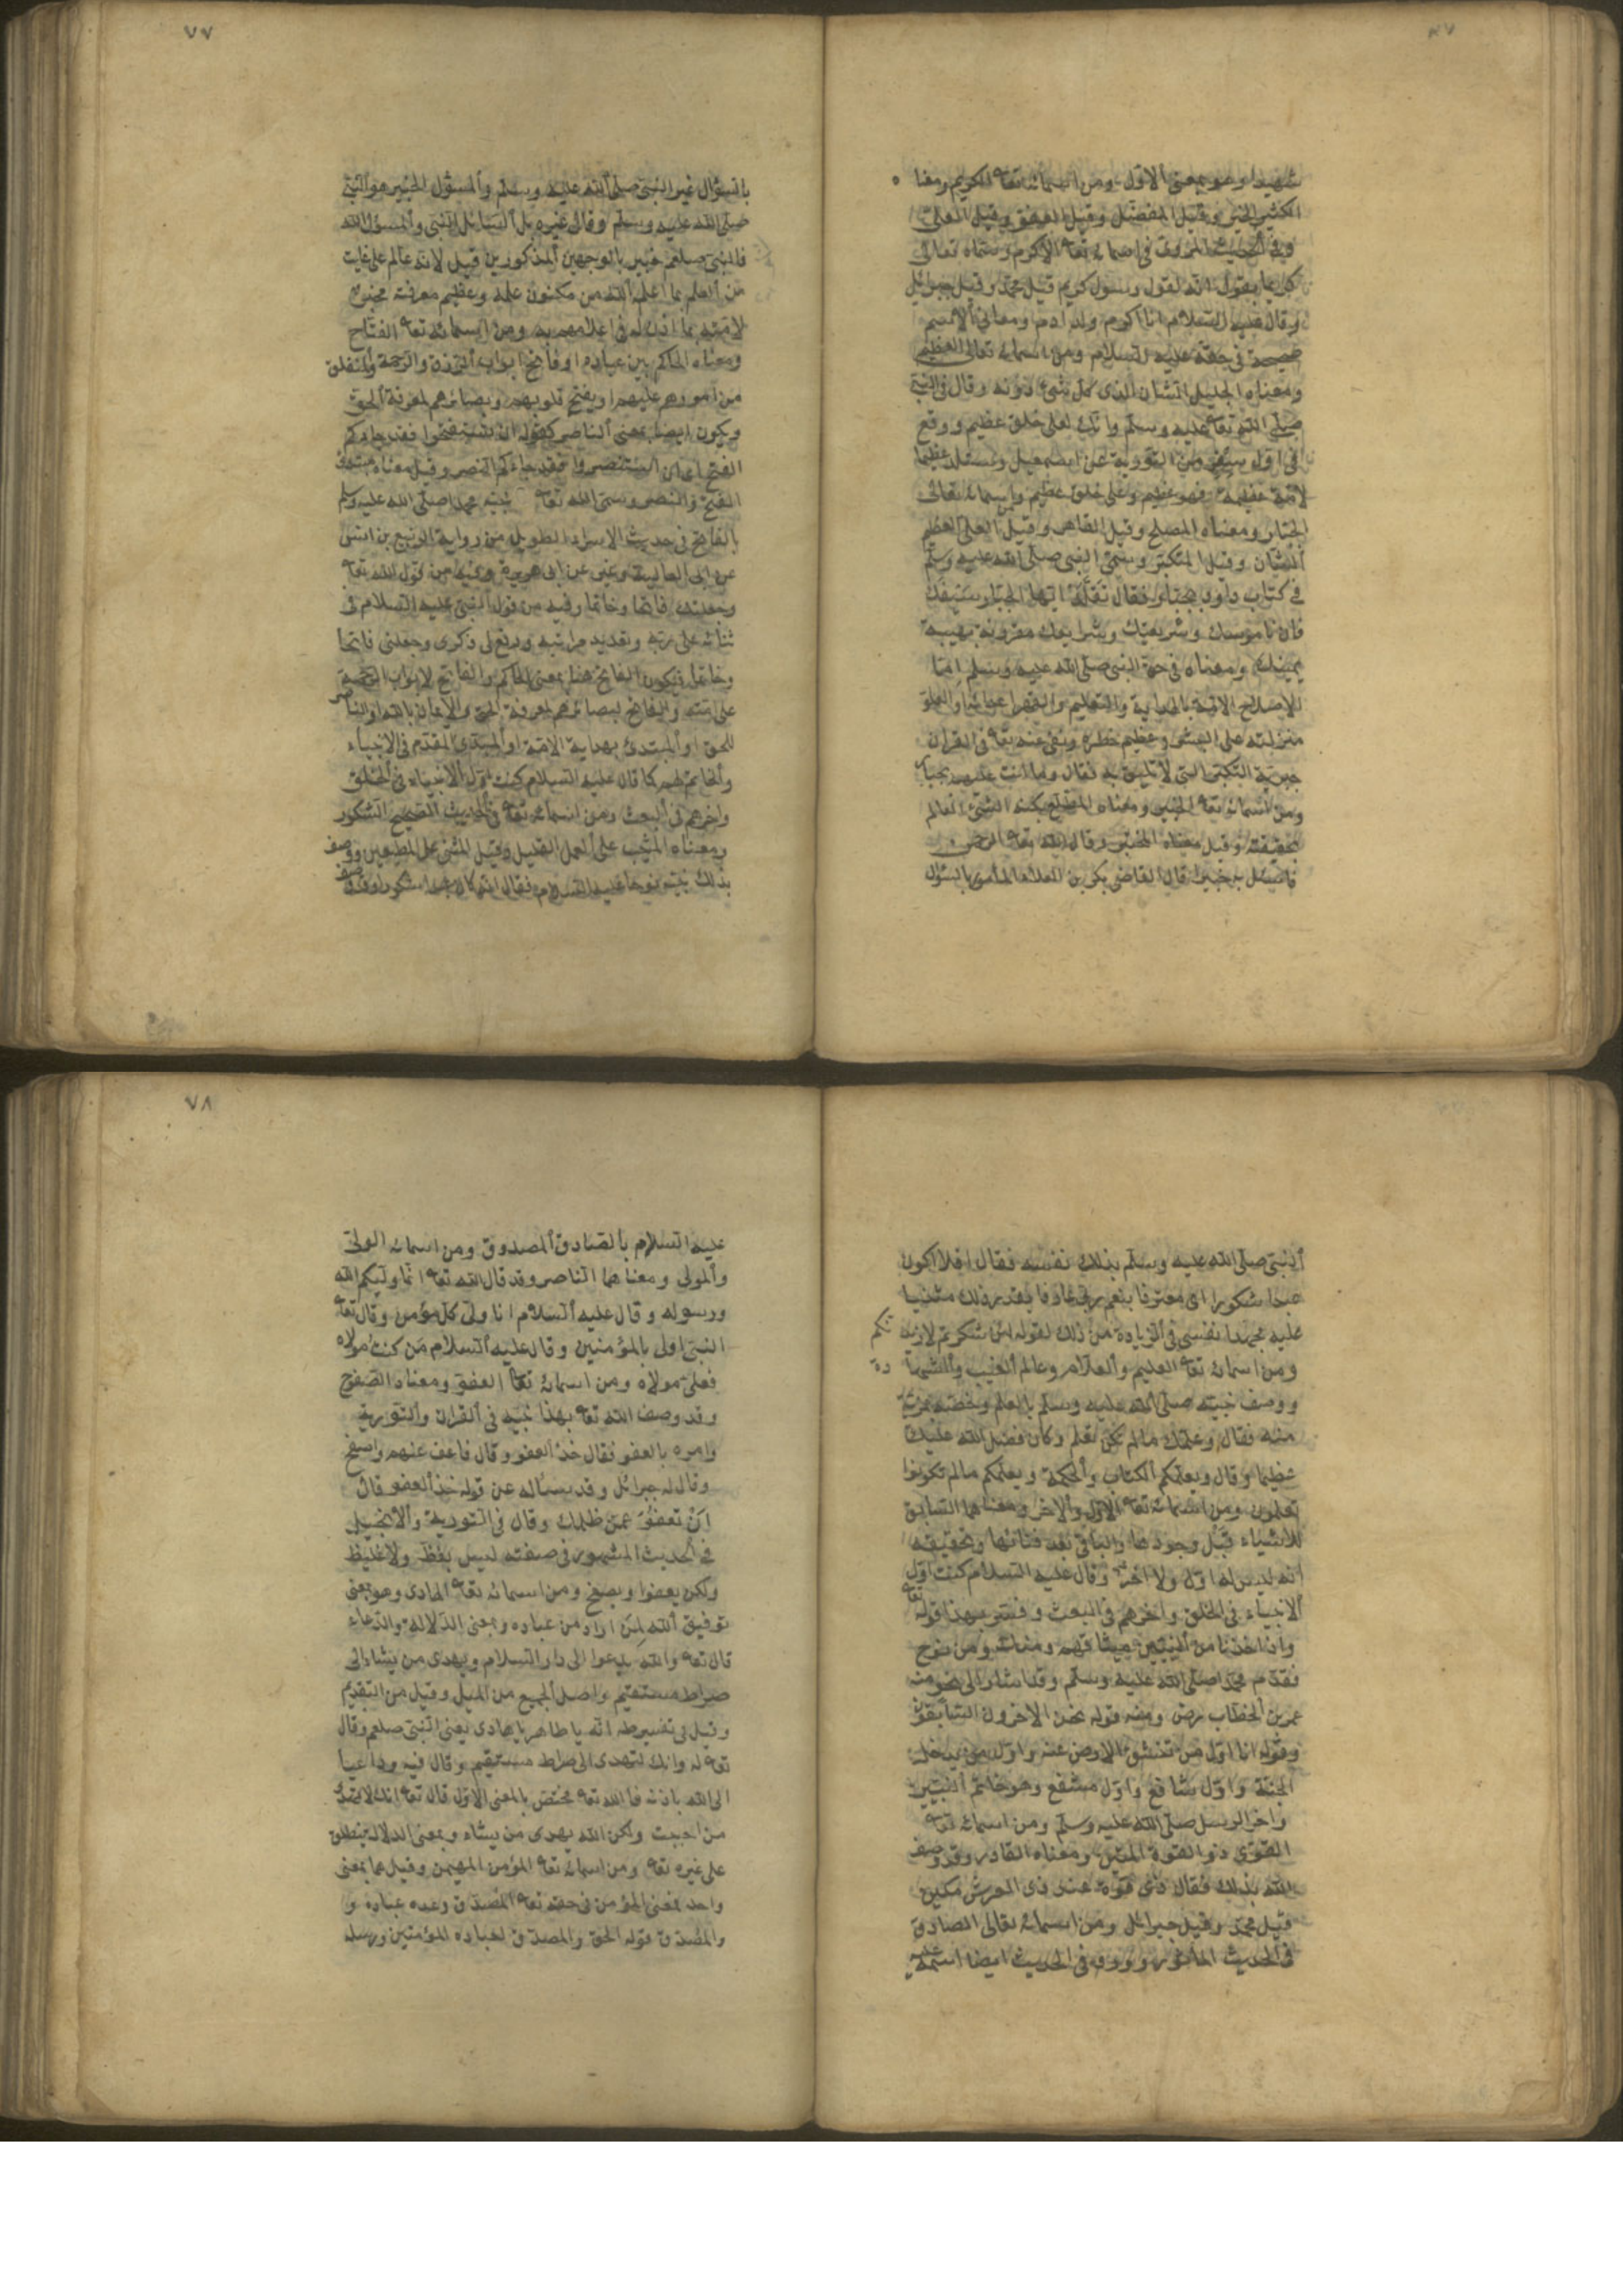 ٧٧
شهيدا وهو بمعنى الاول ومن اسمائه تعا الكريم ومعناه
الكثير الخير وقيل المفضل وقيل العفو وقيل العلى
وفي الحديث المروى في اسمائه تعا الاكرم وسماه تعالى
كريما بقوله انه لقول رسول كريم قيل محمد وقيل جبرائل
وقال عليه السلام انا اكرم ولد ادم ومعانى الاسم
صحيحة في حقه عليه السلام ومن اسمائه تعالى العظيم
ومعناه الجليل الشان الذى كل شىء دونه وقال في النبى
صلى الله تعا عليه وسلم وانك لعلى خلق عظيم ووقع
في اول سفر من التورية عن اسمعيل وستلد عظيما
لامة عظيمة فهو عظيم وعلى خلق عظيم واسمائه تعالى
الجبار ومعناه المصلح وقيل القاهر وقيل العلى العظيم
الشان وقيل المتكبر وسمى النبى صلى الله عليه وسلم
في كتاب داود بجبار فقال تقلد ايها الجبار سيفك
فان ناموسك وشريعتك وشرايعك مقرونة بهيبة
يمينك ومعناه في حق النبى صلى الله عليه وسلم اما
لاصلاح الامة بالهداية والتعليم والقهر اعدائه او لعلو
منزلته على البشر وعظيم خطره ونفى عنه تعا في القران
جبرية التكبر التى لا تليق به فقال وما انت عليهم بجبار
ومن اسمائه تعا الخبير ومعناه المطلع بكنه الشىء العالم
بحقيقته وقيل معناه المخبر وقال الله تعا الرحمن
فاسئل به خبيرا قال القاضى بكر بن العلاء المأمور بالسؤال
بالسؤال غير النبى صلى الله عليه وسلم والمسؤل الخبير هو النبى
صلى الله عليه وسلم وقال غيره بل السائل النبى والمسؤل الله
فالنبى صلعم خبير بالوجهين المذكورين قيل لانه عالم على غاية
من العلم بما اعلمه الله من مكنون علمه وعظيم معرفته مخبر
لامته بما اذن له في اعلامهم به ومن اسمائه تعا الفتاح
ومعناه الحاكم بين عباده او فاتح ابواب الرزق والرحمة والمنغلق
من امورهم عليهم او يفتح قلوبهم وبصائرهم لمعرفة الحق
ويكون ايضا بمعنى الناصر كقوله ان تستفتحوا فقد جاءكم
الفتح اى ان تستنصروا فقد جاءكم النصر وقيل معناه مبتدئ
الفتح والنصر وسمى الله تعا نبيه محمدا صلى الله عليه وسلم
بالفاتح في حديث الاسراء الطويل من رواية الربيع بن انس
عن ابى العالية وغيره عن ابى هريرة وفيه من قول الله تعا
وجعلتك فاتحا وخاتما وفيه من قول النبى عليه السلام في
ثنائه على ربه وتعديد مراتبه ورفع لى ذكرى وجعلنى فاتحا
وخاتما فيكون الفاتح هنا بمعنى الحاكم والفاتح لابواب الرحمة
على امته والفاتح لبصائرهم لمعرفة الحق والايمان بالله او الناصر
للحق او المبتدئ بهداية الامة او المبتدئ المقدم في الانبياء
والخاتم لهم كما قال عليه السلام كنت اول الانبياء في الخلق
واخرهم في البعث ومن اسمائه تعا في الحديث الصحيح الشكور
ومعناه المثيب على العمل القليل وقيل المثنى على المطيعين ووصف
بذلك نبيه نوحا عليه السلام فقال انه كان عبدا شكورا وقد وصف
٧٨
النبى صلى الله عليه وسلم بذلك نفسه فقال افلا اكون
عبدا شكورا اى معترفا بنعم ربى عارفا بقدر ذلك مثنيا
عليه مجهدا نفسى في الزيادة من ذلك لقوله لئن شكرتم لازيدنكم
ومن اسمائه تعا العليم والعلام وعالم الغيب والشهادة
ووصف نبيه صلى الله عليه وسلم بالعلم وخصه بمزية
منه فقال وعلمك مالم تكن تعلم وكان فضل الله عليك
عظيما وقال ويعلمكم الكتاب والحكمة ويعلمكم مالم تكونوا
تعلمون ومن اسمائه تعا الاول والاخر ومعناهما السابق
للاشياء قبل وجودها والباقى بعد فنائها وتحقيقه
انه ليس له اول ولا اخر وقال عليه السلام كنت اول
الانبياء في الخلق واخرهم في البعث وفسر بهذا قوله تعا
واذ اخذنا من النبيين ميثاقهم ومنك ومن نوح
فقدم محمدا صلى الله عليه وسلم وقد اشار الى نحو منه
عمر بن الخطاب رض ومنه قوله نحن الاخرون السابقون
وقوله انا اول من تنشق الارض عنه واول من يدخل
الجنة واول شافع واول مشفع وهو خاتم النبيين
واخر الرسل صلى الله عليه وسلم ومن اسمائه تعا
القوى ذو القوة المتين ومعناه القادر وقد وصف
الله بذلك فقال ذى قوة عند ذى العرش مكين
قيل محمد وقيل جبرائل ومن اسمائه تعالى الصادق
في الحديث المأثور وورد في الحديث ايضا اسمه
عليه السلام بالصادق المصدوق ومن اسمائه الولى
والمولى ومعناهما الناصر وقد قال الله تعا انما وليكم الله
ورسوله وقال عليه السلام انا ولى كل مؤمن وقال تعا
النبى اولى بالمؤمنين وقال عليه السلام من كنت مولاه
فعلى مولاه ومن اسمائه تعا العفو ومعناه الصفوح
وقد وصف الله تعا بهذا نبيه في القران والتورية
وامره بالعفو فقال خذ العفو وقال فاعف عنهم واصفح
وقال له جبرائل وقد سأله عن قوله خذ العفو قال
ان تعفو عمن ظلمك وقال في التورية والانجيل
في الحديث المشهور في صفته ليس بفظ ولا غليظ
ولكن يعفوا ويصفح ومن اسمائه تعا الهادى وهو بمعنى
توفيق الله لمن اراد من عباده وبمعنى الدلالة والدعاء
قال تعا والله يدعوا الى دار السلام ويهدى من يشاء الى
صراط مستقيم واصل الجميع من الميل وقيل من التقديم
وقيل في تفسير طه انه يا طاهر يا هادى يعنى النبى صلعم وقال
تعا له وانك لتهدى الى صراط مستقيم وقال فيه وداعيا
الى الله باذنه فالله تعا مختص بالمعنى الاول قال تعا انك لا تهدى
من احببت ولكن الله يهدى من يشاء وبمعنى الدلالة ينطلق
على غيره تعا ومن اسمائه تعا المؤمن المهيمن وقيل هما بمعنى
واحد فمعنى المؤمن في حقه تعا المصدق وعده عباده و
والمصدق قوله الحق والمصدق لعباده المؤمنين ورسله